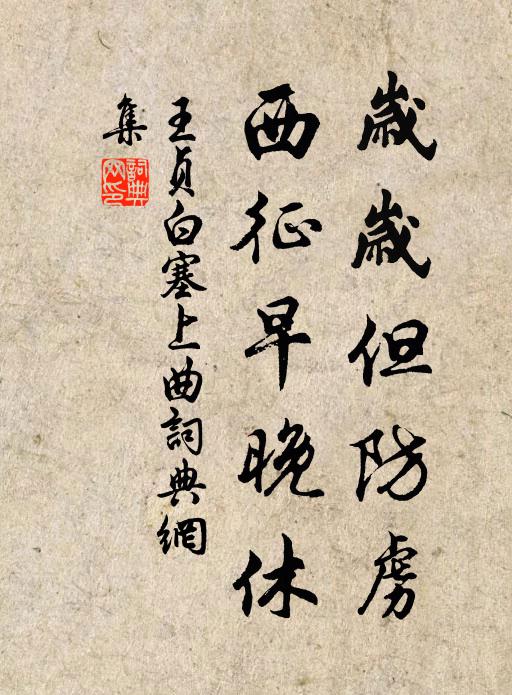 歲歲但防虜
西征早晚休
王貞白塞上曲詞典網
集
詞典
网印